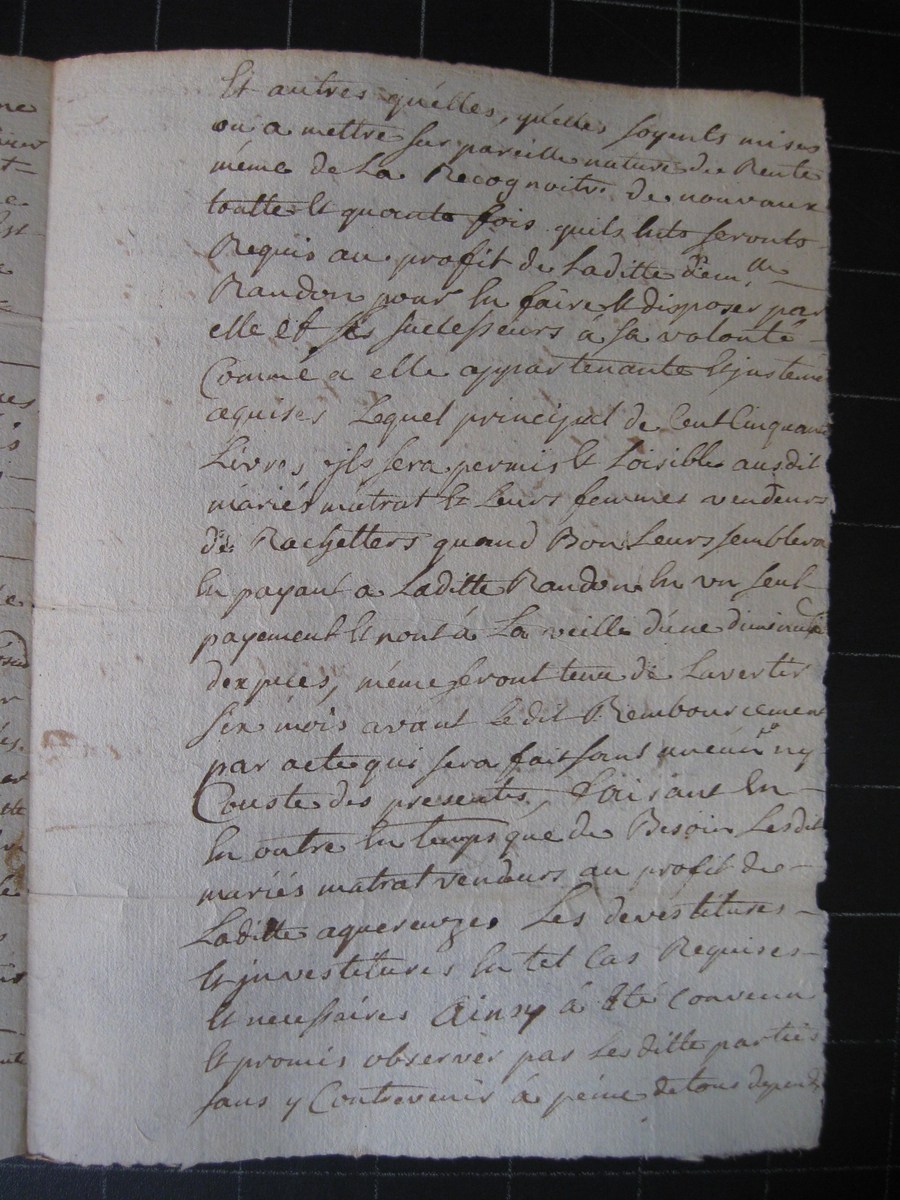 Et autres quélles, quélles soyents mises
ou a mettre sur pareille nature de Rente
même de La Recognoitre de nouvaux
toutte Et quante fois quils Ents seronts
Requis au profit de Laditte dem.lle
Randon pour En faire Et disposer par
elle et ses successeurs à sa volonté
Comme a elle appartenante Et justeme
acquises Lequel principal de Cent Cinquante
Livres ils sera permis Et Loisible ausdit
mariés matrat Et Leurs femmes vendeurs
de Rachetters quand Bon Leurs semblera
En payant a Laditte Randon En un seul
payement Et non à La veille d'une diminution
despeces, méme seront tenu de Lavertir
six mois avant Ledit Rembourcement
par acte qui sera fait sans ny
Couste des presentes, faisant En
En outre En temps que de Besoin Lesdit
mariés matrat vendeurs au profit de
Laditte aquereuze, Les devestitures
Et investitures En tel Cas Requises
Et necessaires Ainsy à Eté Convenu
Et promis observer par Lesditte parties
sans y Contrevenir à peine de tous depends